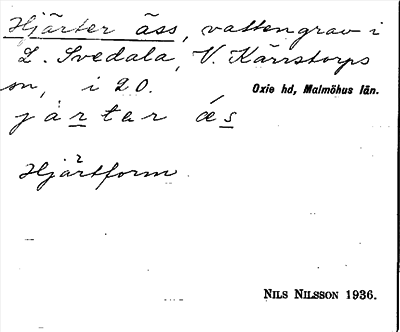 Hjärter äss, vattengrav i
L. Svedala, V. Kärrstorps
sn, i 20. Oxie hd, Malmöhus län.
järtar ǽs
Hjärtform.
NILS NILSSON 1936.